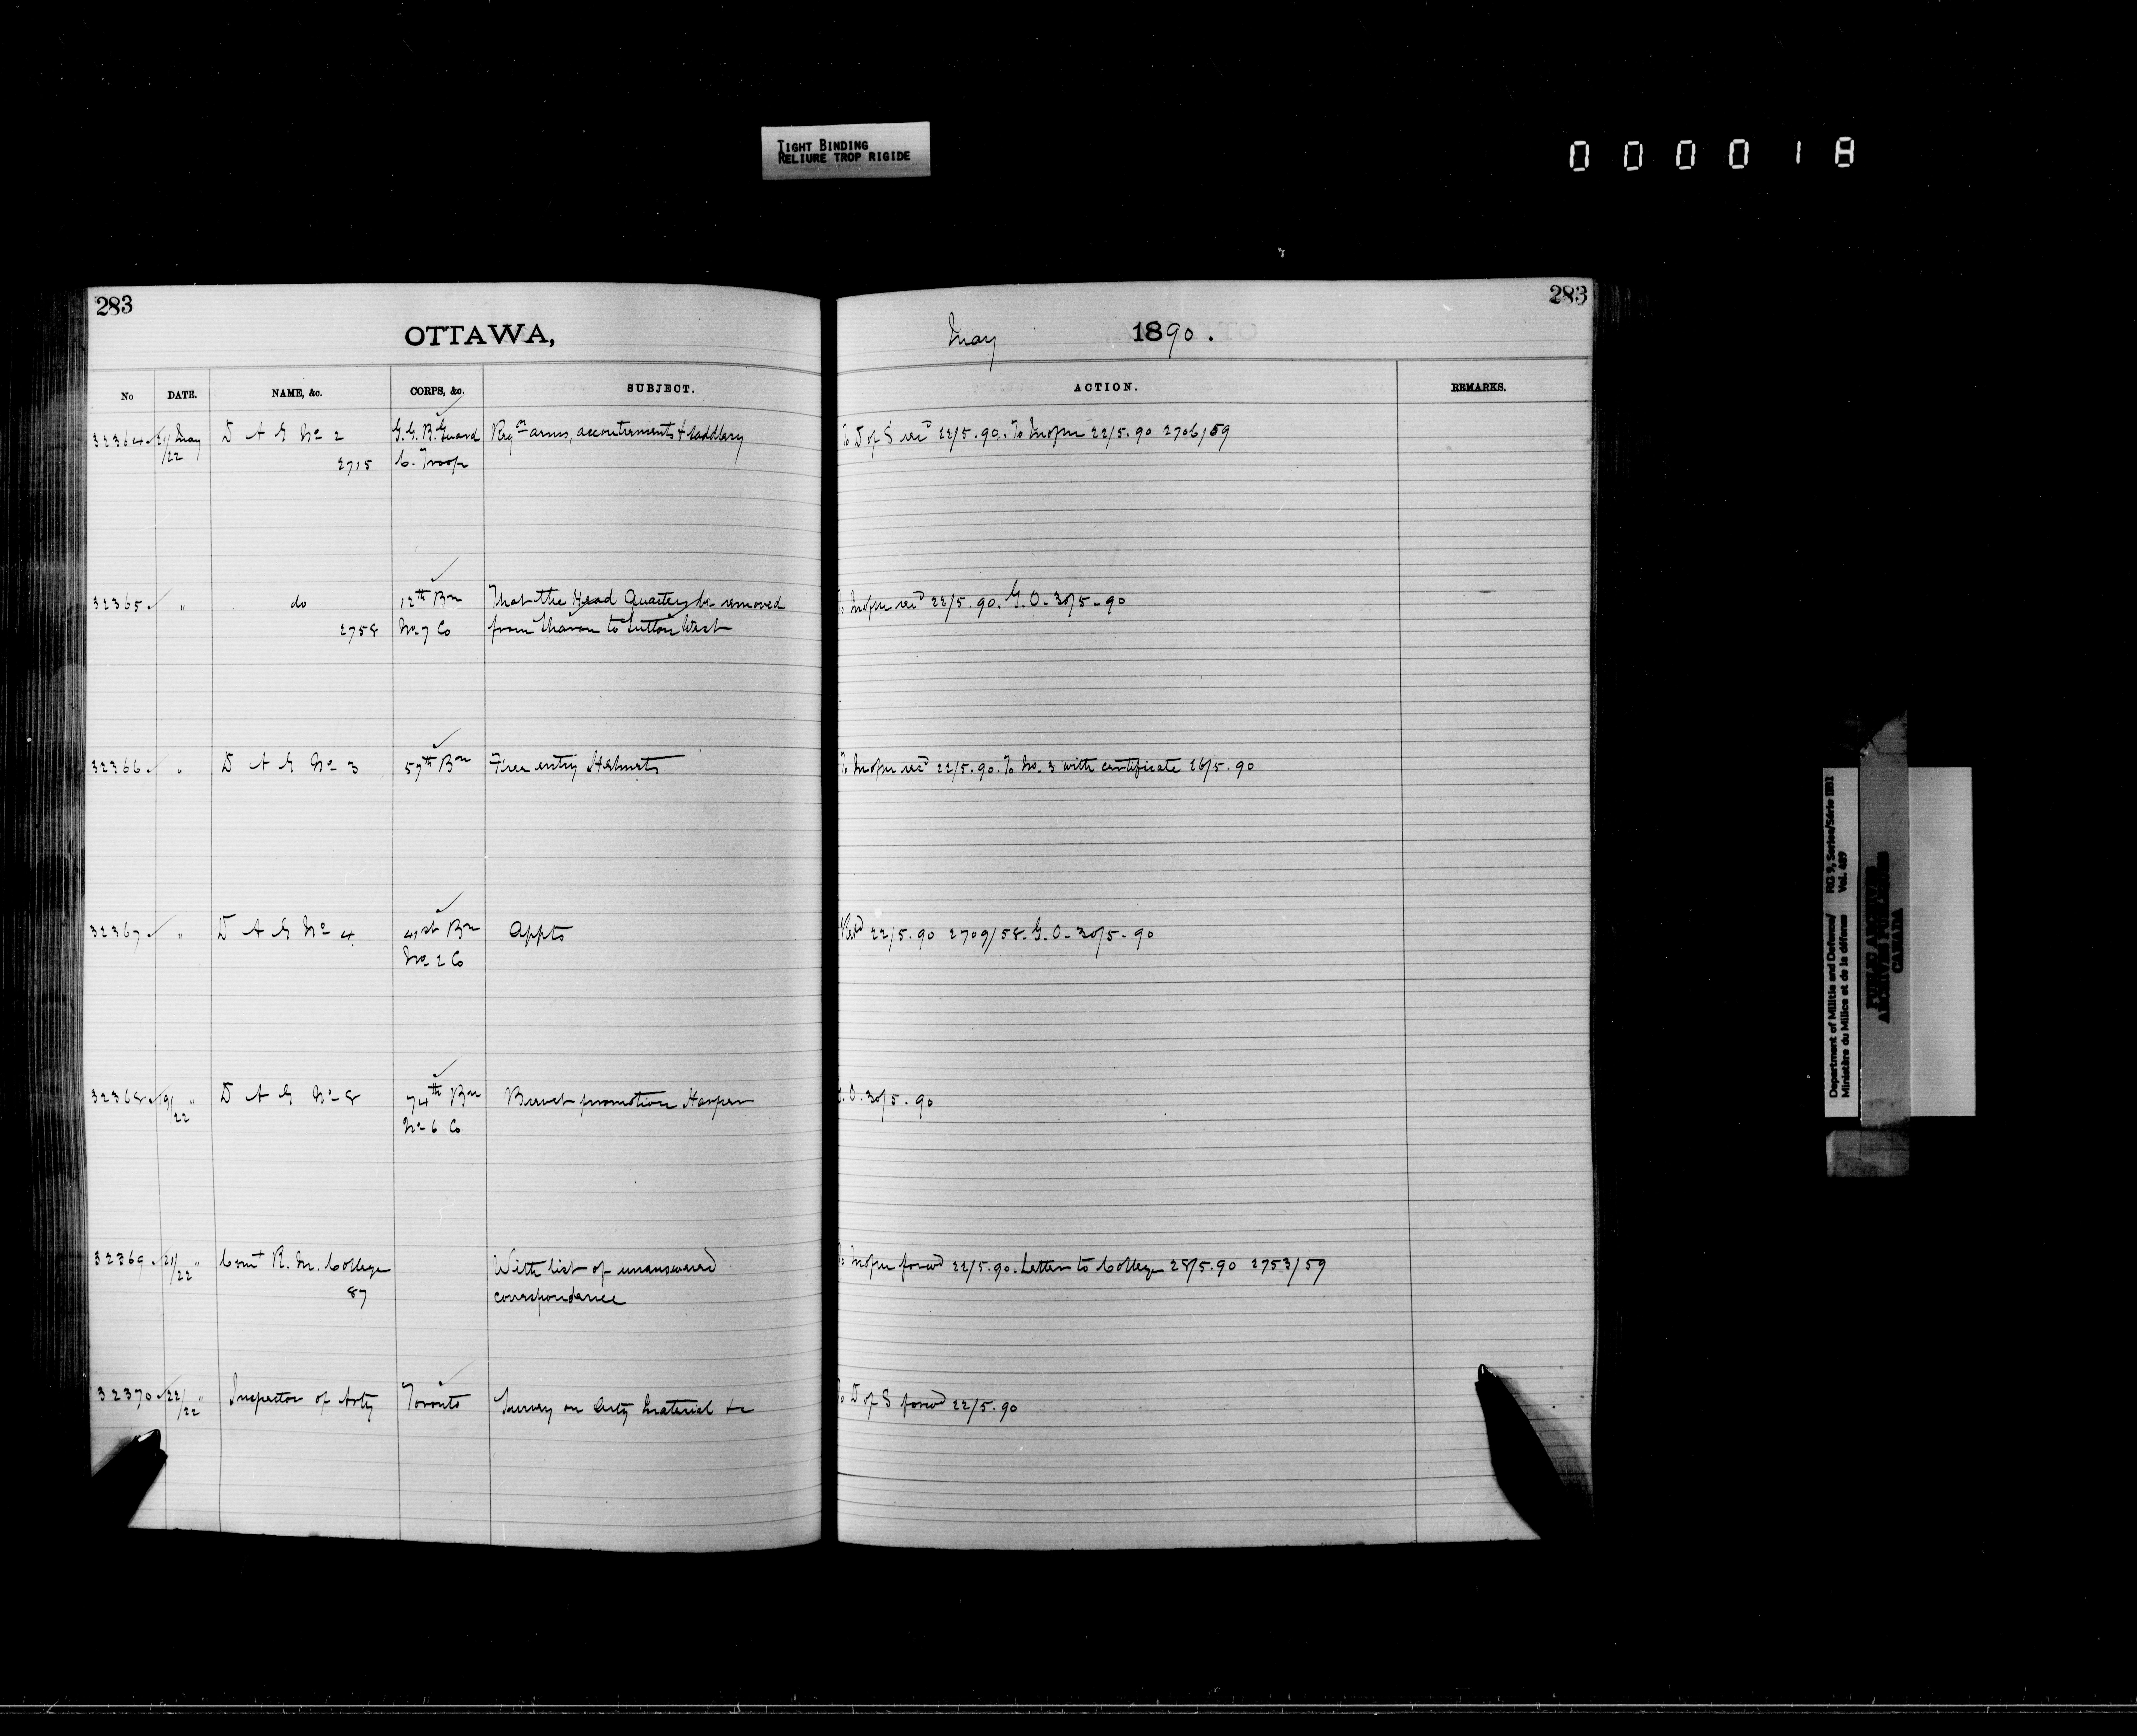 TIGHT BINDING
RELIURE TROP RIGIDE
000018
283
283
OTTAWA,
May 1890.
No DATE. NAME, &c. CORPS, &c. SUBJECT. ACTION. REMARKS.
32364 21/22 May D A G No 2 G.G.B. Guard Reqon arms, accoutrements & saddlery To D of S recd 22/5.90. To 22/5.90 2706/59
2715 C. Troop
32365 " do 12th Bn That the Head Quarters be removed recd 22/5.90. G.O. 30/5-90
2758 No 7 Co from Sharon to Sutton West
32366 " D A G No 3 57th Bn Free entry Helmets To recd 22/5.90. To No. 3 with certificate 26/5.90
32367 " D A G No 4 41st Bn Appts 22/5.90 2709/58. G.O. 30/5-90
No 2 Co
32368 19/22 " D A G No 8 74th Bn Brevet promotion Harper G.O. 30/5.90
No 6 Co
32369 21/22 " Comt R. M. College With list of unanswered To forwd 22/5.90. Letter to College 28/5.90 2753/59
87 correspondence
32370 22/22 " Inspector of Arty Toronto Survey on Arty Material &c To D of S forwd 22/5.90
Department of Militia and Defence/ RG 9, Series/Série IIB1
Ministère du Milice et de la défense Vol. 489
PUBLIC ARCHIVES
ARCHIVES PUBLIQUES
CANADA